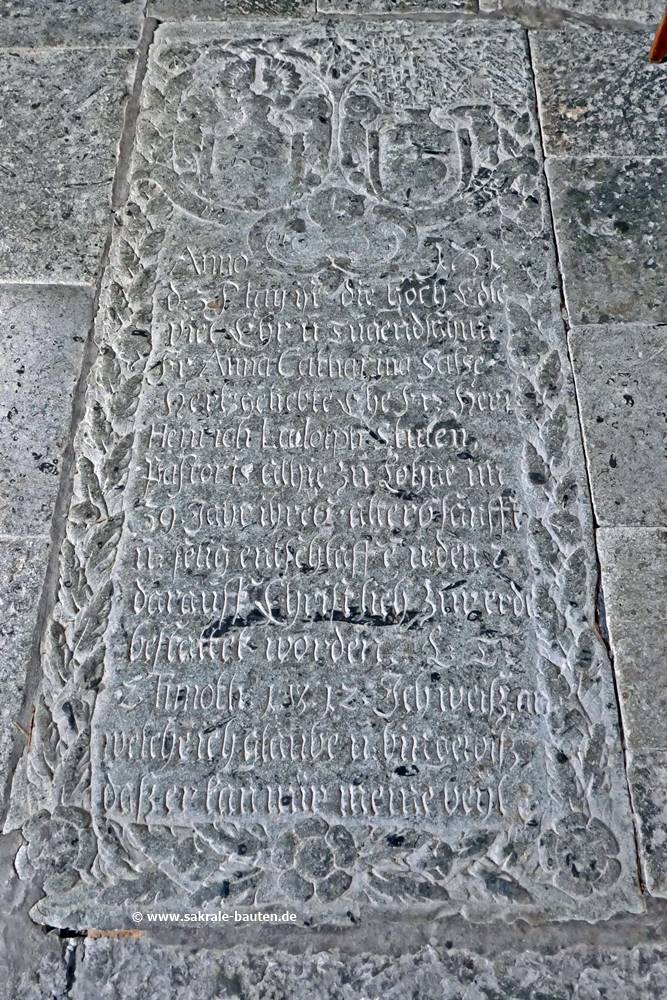 Anno
die Hoch Edle
viel Ehr u Tugendsame
Fr Anna Catharina
Hertzgeliebte Ehe Fr: Herr
Henrich Ludolph
Pastoris alhie zu Lohne im
39 Jahr ihres alters sanfft
u: selig entschlaffe u: den
darauff Christlich zur erde
bestattet worden. L: T:
2 Timoth: 1 v: 12 Ich weiß an
welche ich glaube u bin gewiß
daß er kan mir meine beyl
© www.sakrale-bauten.de